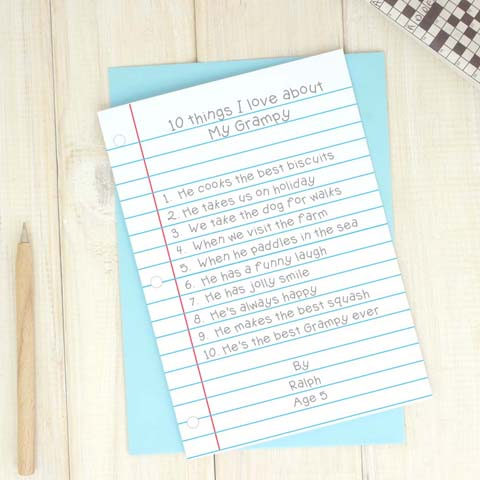 10 things I love about
My Grampy
1. He cooks the best biscuits
2. He takes us on holiday
3. We take the dog for walks
4. When we visit the farm
5. When he paddles in the sea
6. He has a funny laugh
7. He has jolly smile
8. He's always happy
9. He makes the best squash
10. He's the best Grampy ever
By
Ralph
Age 5